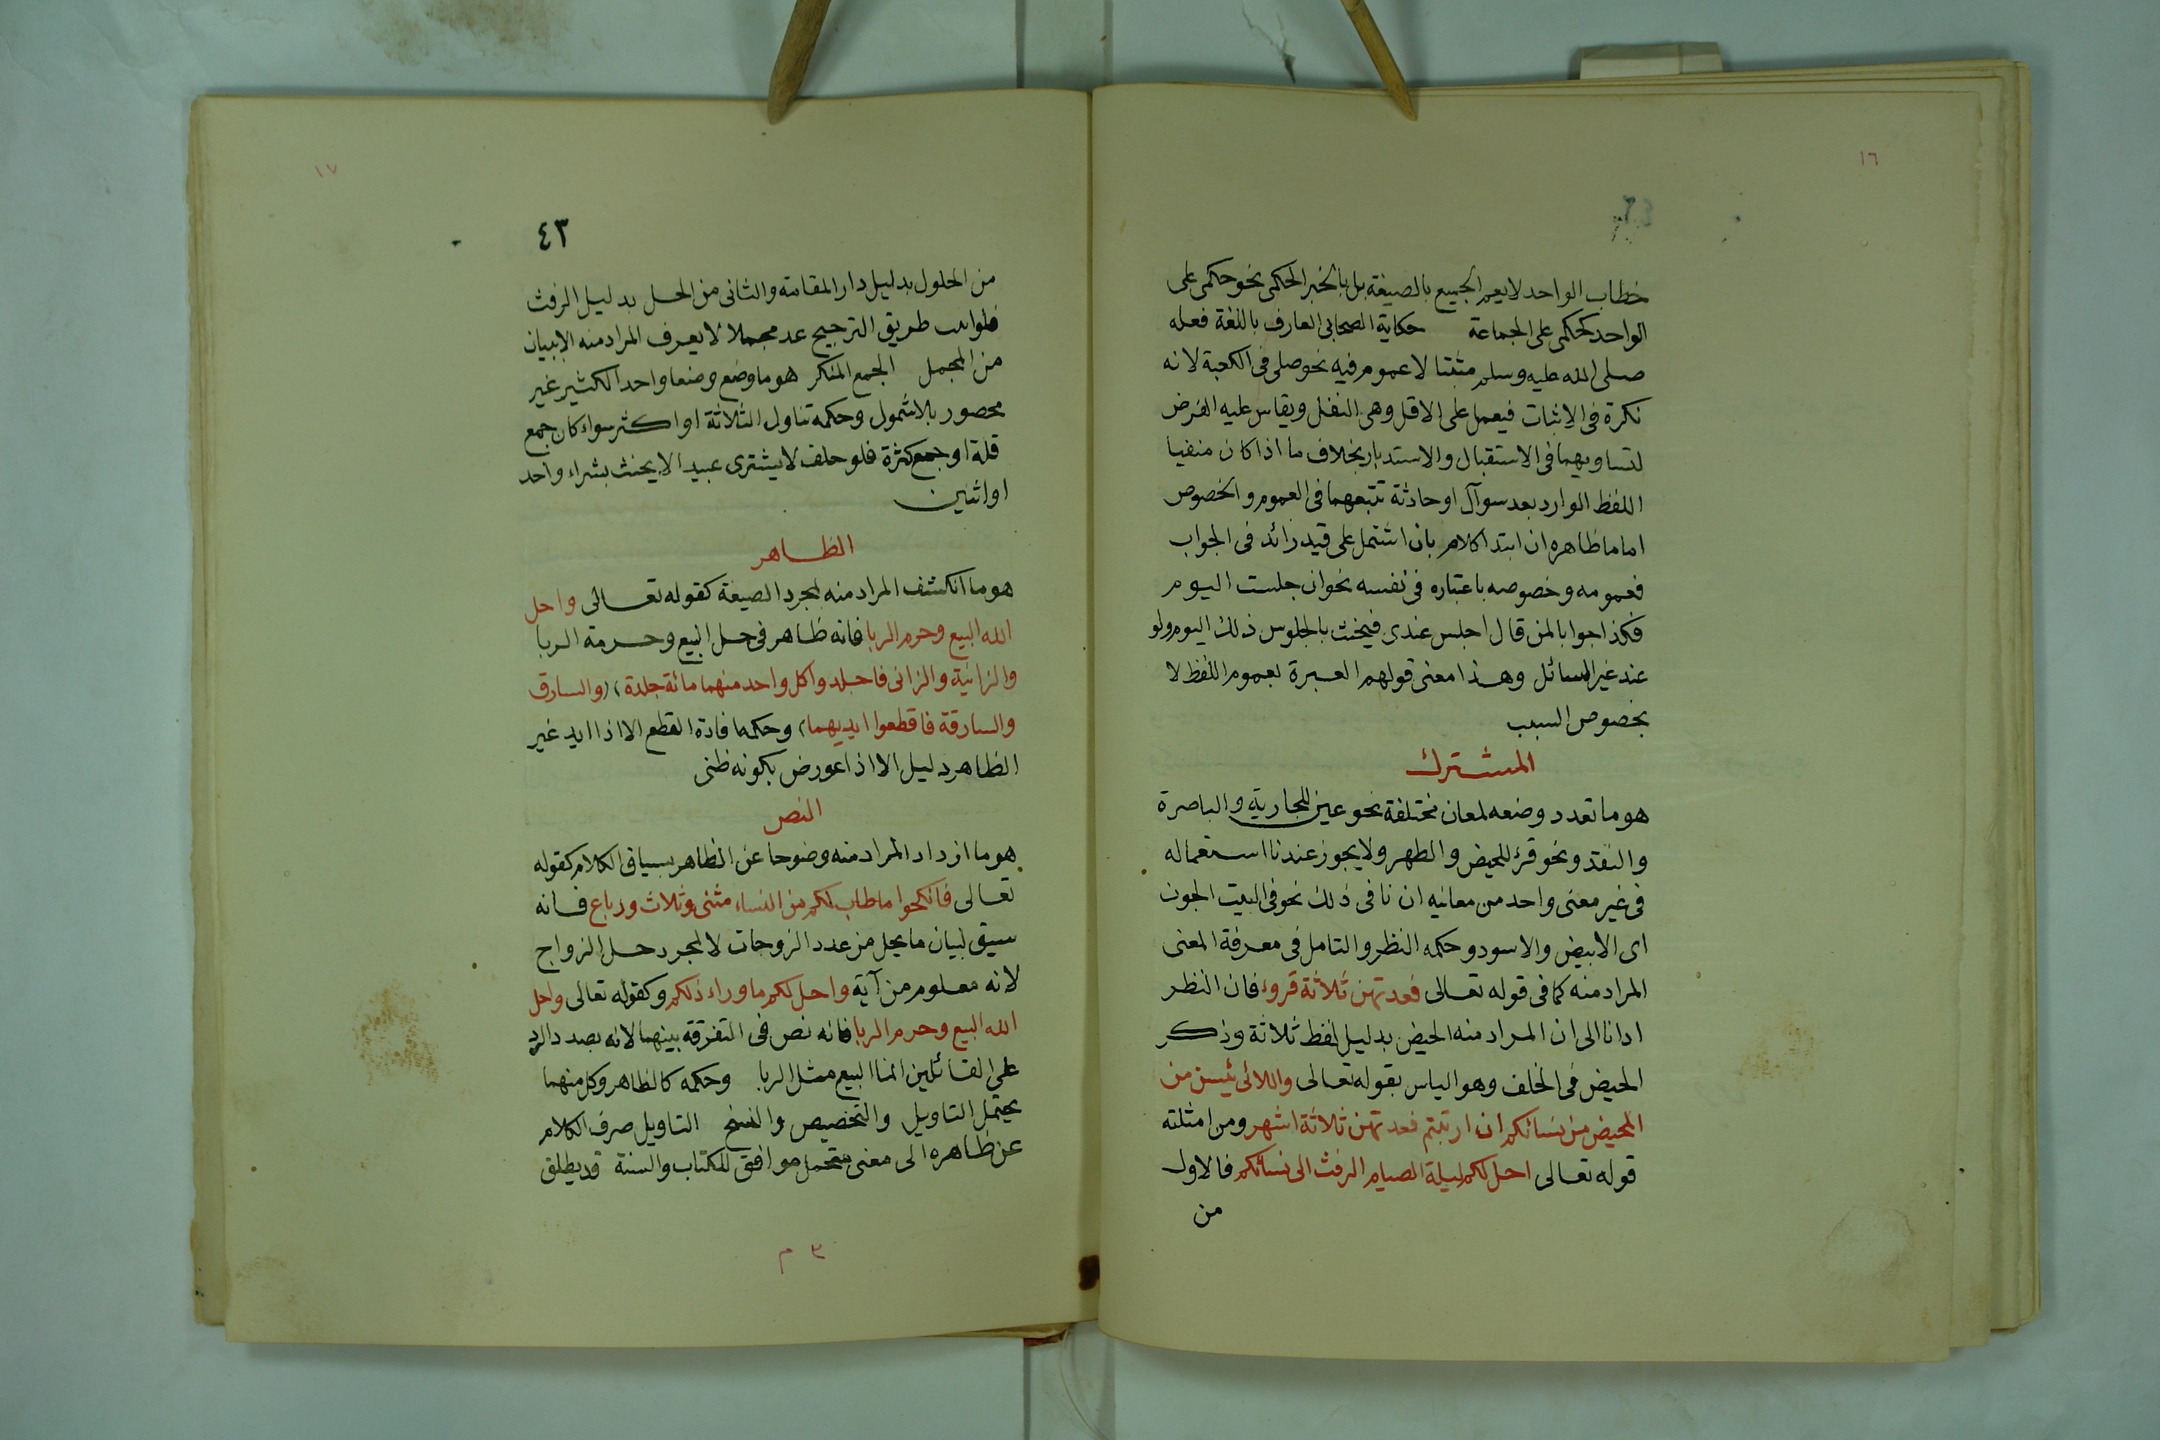 ١٦
خطاب الواحد لا يعم الجميع بالصيغة بل بالخبر الحكمى نحو حكمى على
الواحد كحكمى على الجماعة حكاية الصحابى العارف باللغة فعله
صلى الله عليه وسلم مثبتا لا عموم فيه نحو صلى فى الكعبة لانه
نكرة فى الاثبات فيعمل على الاقل وهى النفل ويقاس عليه الفرض
لتساويهما فى الاستقبال والاستدبار بخلاف ما اذا كان منفيا
اللفظ الوارد بعد سوآل او حادثة تتبعهما فى العموم والخصوص
اما ما ظاهره ان ابتدا كلام بان اشتمل على قيد زائد فى الجواب
فعمومه وخصوصه باعتباره فى نفسه نحو ان جلست اليوم
فكذا جوابا لمن قال اجلس عندى فيحنث بالجلوس ذلك اليوم ولو
عند غير السائل وهذا معنى قولهم العبرة بعموم اللفظ لا
بخصوص السبب
المشترك
هو ما تعدد وضعه لمعان مختلفة نحو عين للجارية والباصرة
والنقد ونحو قرء للحيض والطهر ولا يجوز عندنا استعماله
فى غير معنى واحد من معانيه ان نافى ذلك نحو فى البيت الجون
اى الابيض والاسود وحكمه النظر والتامل فى معرفة المعنى
المراد منه كما فى قوله تعالى فعدتهن ثلاثة قروء فان النظر
ادانا الى ان المراد منه الحيض بدليل لفظ ثلاثة وذكر
المحيض فى الخلف وهو الياس بقوله تعالى واللائى يئسن من
المحيض من نسائكم ان ارتبتم فعدتهن ثلاثة اشهر ومن امثلته
قوله تعالى احل لكم ليلة الصيام الرفث الى نسائكم فالاول
من
١٧
٤٣
من الحلول بدليل دار المقامة والثانى من الحل بدليل الرفث
فلو انسد طريق الترجيح عد مجملا لا يعرف المراد منه الا ببيان
من المجمل الجمع المنكر هو ما وضع وضعا واحدا لكثير غير
محصور بلا شمول وحكمه تناول الثلاثة او اكثر سواء كان جمع
قلة او جمع كثرة فلو حلف لا يشترى عبيدا لا يحنث بشراء واحد
او اثنين
الظاهر
هو ما انكشف المراد منه بمجرد الصيغة كقوله تعالى واحل
الله البيع وحرم الربا فانه ظاهر فى حل البيع وحرمة الربا
والزانية والزانى فاجلدوا كل واحد منهما مائة جلدة) (والسارق
والسارقة فاقطعوا ايديهما) وحكمه افادة القطع الا اذا ايد غير
الظاهر دليل الا اذا عورض بكونه ظنى
النص
هو ما ازداد المراد منه وضوحا عن الظاهر بسياق الكلام كقوله
تعالى فانكحوا ما طاب لكم من النساء مثنى وثلاث ورباع فانه
سيق لبيان ما يحل من عدد الزوجات لا لمجرد حل الزواج
لانه معلوم من آية واحل لكم ما وراء ذلكم وكقوله تعالى واحل
الله البيع وحرم الربا فانه نص فى التفرقة بينهما لانه بصدد الرد
على القائلين انما البيع مثل الربا وحكمه كالظاهر وكل منهما
يحتمل التاويل والتخصيص والنسخ التاويل صرف الكلام
عن ظاهره الى معنى يحتمل موافق للكتاب والسنة قد يطلق
٣ م